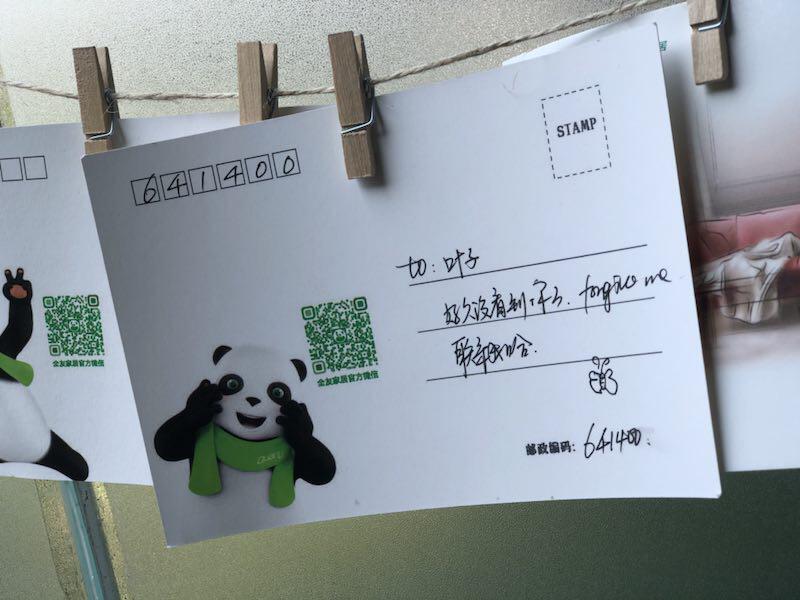 641400
STAMP
to: 叶子
好久没有写字了. forgive me
联系我哈.
全友家居官方微信
全友家居官方微信
QUANU
邮政编码: 641400.